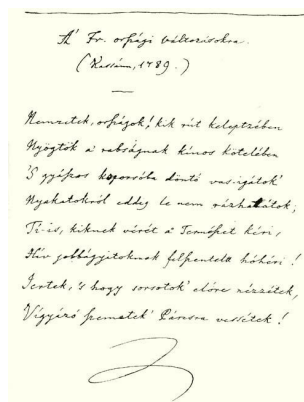 A' Fr. orſzági változásokra.
(Kassám, 1789.)
Nemzetek, orſzágok! kik rút keleptzében
Nyögtök a' rabságnak kínos kötelében
'S gyászos koporsóba döntő vas-igátok'
Nyakatokról eddig le nem rázhatátok;
Ti-is, kiknek vérét a' Termeſzet kéri,
Hív jobbágyitoknak felſzentelt hóhéri!
Jertek, 's hogy sorsotok' előre nézzétek,
Vigyázó ſzemetek' Párisra vessétek!